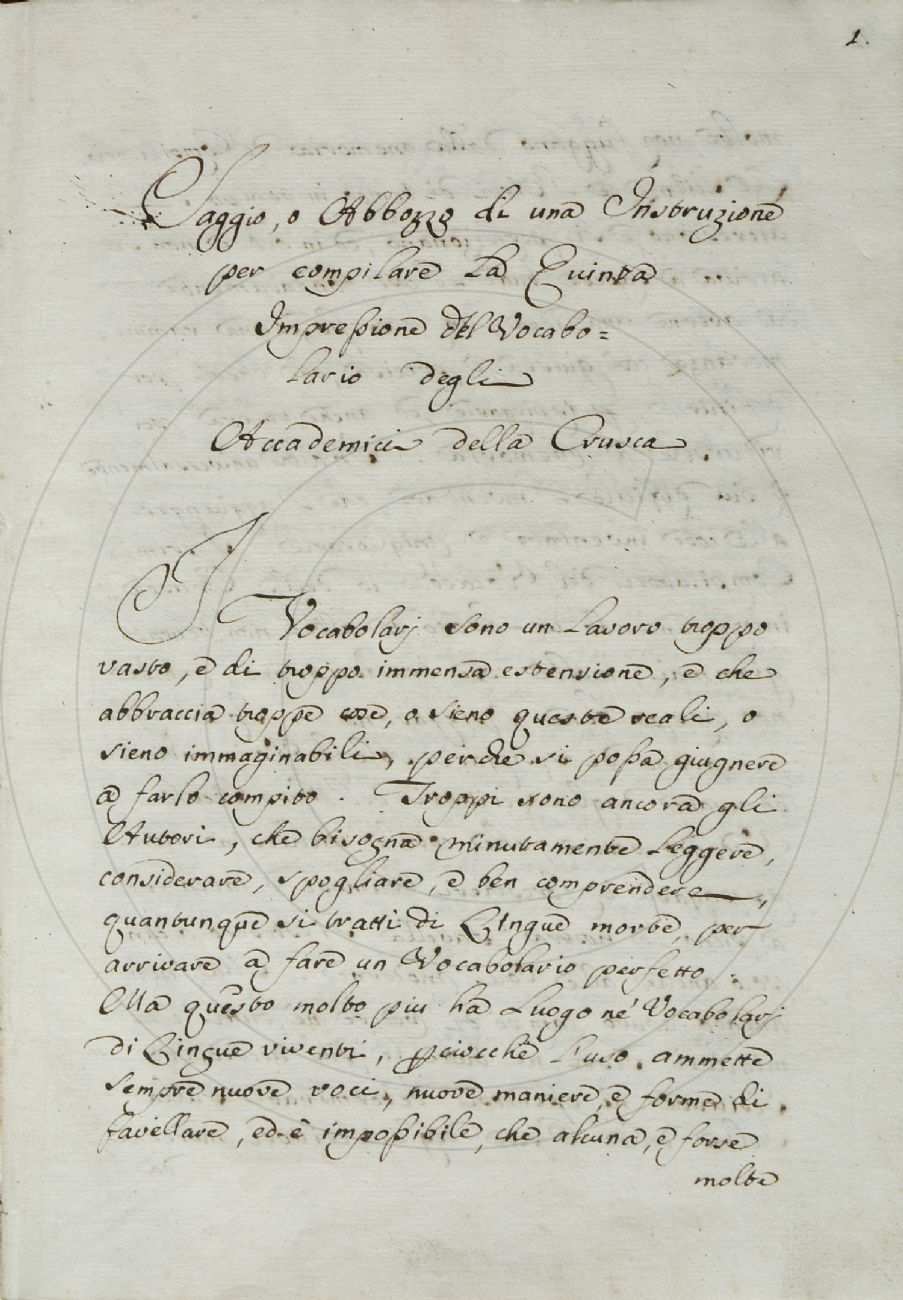 1.
Saggio, o Abbozzo di una Instruzione
per compilare la Quinta
Impressione del Vocabo=
lario degli
Accademici della Crusca.
I Vocabolarj sono un lavoro troppo
vasto, e di troppo immensa estensione, e che
abbraccia troppe cose, o sieno queste reali, o
sieno immaginabili, perche si possa giugnere
a farlo compito. Troppi sono ancora gli
Autori, che bisogna minutamente leggere,
considerare, spogliare, e ben comprendere,
quantunque si tratti di Lingue morte, per
arrivare a fare un Vocabolario perfetto.
Ma questo molto piu ha luogo ne' Vocabolarj
di Lingue viventi, perciocchè l'uso ammette
sempre nuove voci, nuove maniere, e forme di
favellare, ed è impossibile, che alcuna, e forse
molte